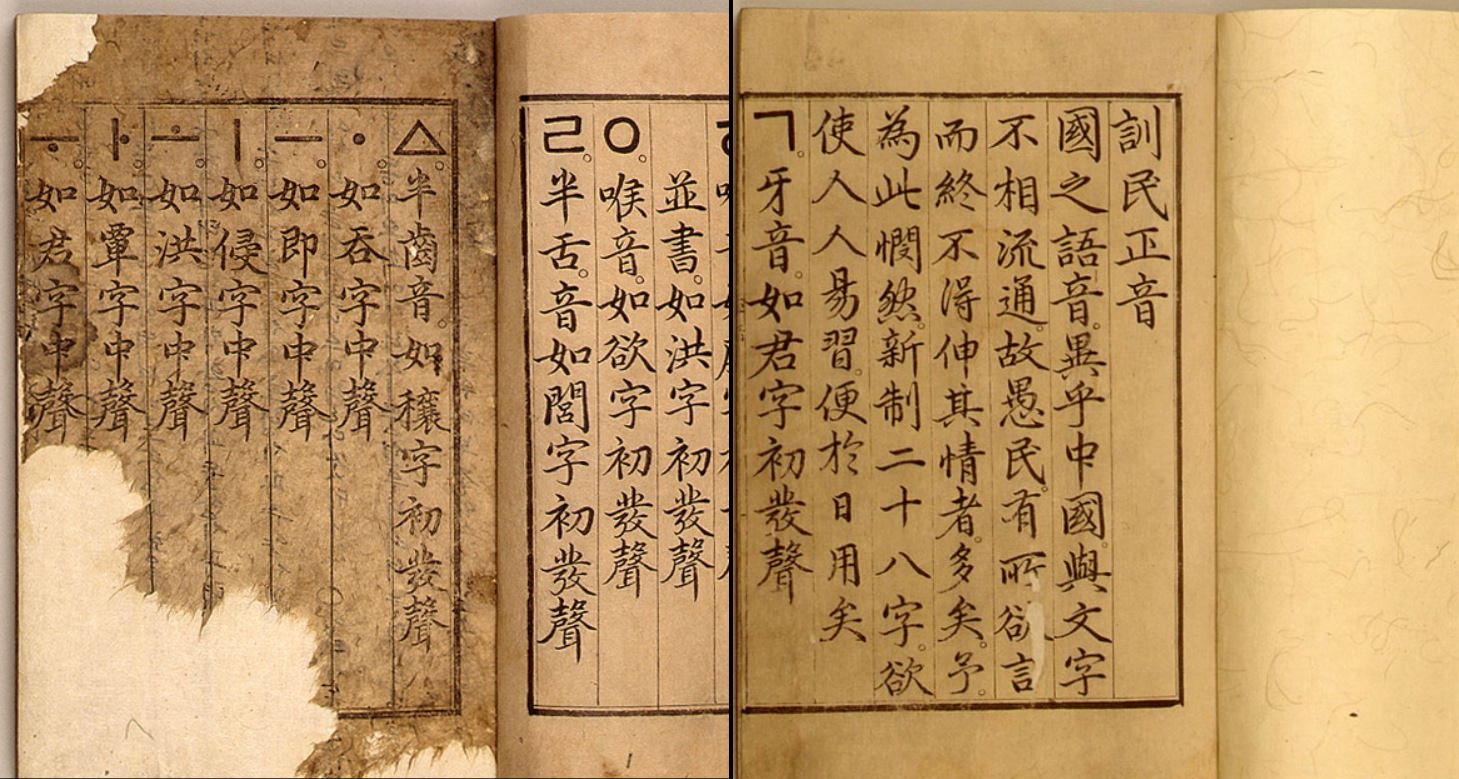 訓民正音
國之語音。異乎中國。與文字
不相流通。故愚民。有所欲言
而終不得伸其情者。多矣。予。
為此憫然。新制二十八字。欲
使人人易習。便於日用矣
ㄱ。牙音。如君字初發聲
並書。如洪字初發聲
ㅇ。喉音。如欲字初發聲
ㄹ。半舌。音如閭字初發聲
ㅿ。半齒音。如穰字初發聲
ㆍ。如呑字中聲
ㅡ。如即字中聲
ㅣ。如侵字中聲
ㅗ。如洪字中聲
ㅏ。如覃字中聲
ㅜ。如君字中聲